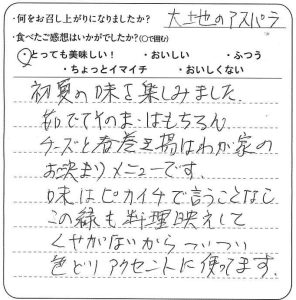 ・何をお召し上がりになりましたか？ 大地のアスパラ
・食べたご感想はいかがでしたか？(○で囲む)
・とっても美味しい！ ・おいしい ・ふつう
・ちょっとイマイチ ・おいしくない
初夏の味を楽しみました。
茹でてそのまゝはもちろん
チーズと春巻き揚はわが家の
お決まりメニューです。
味はピカイチで言うことなし
この緑も料理映えして
くせがないから ついつい
色どりアクセントに使ってます。